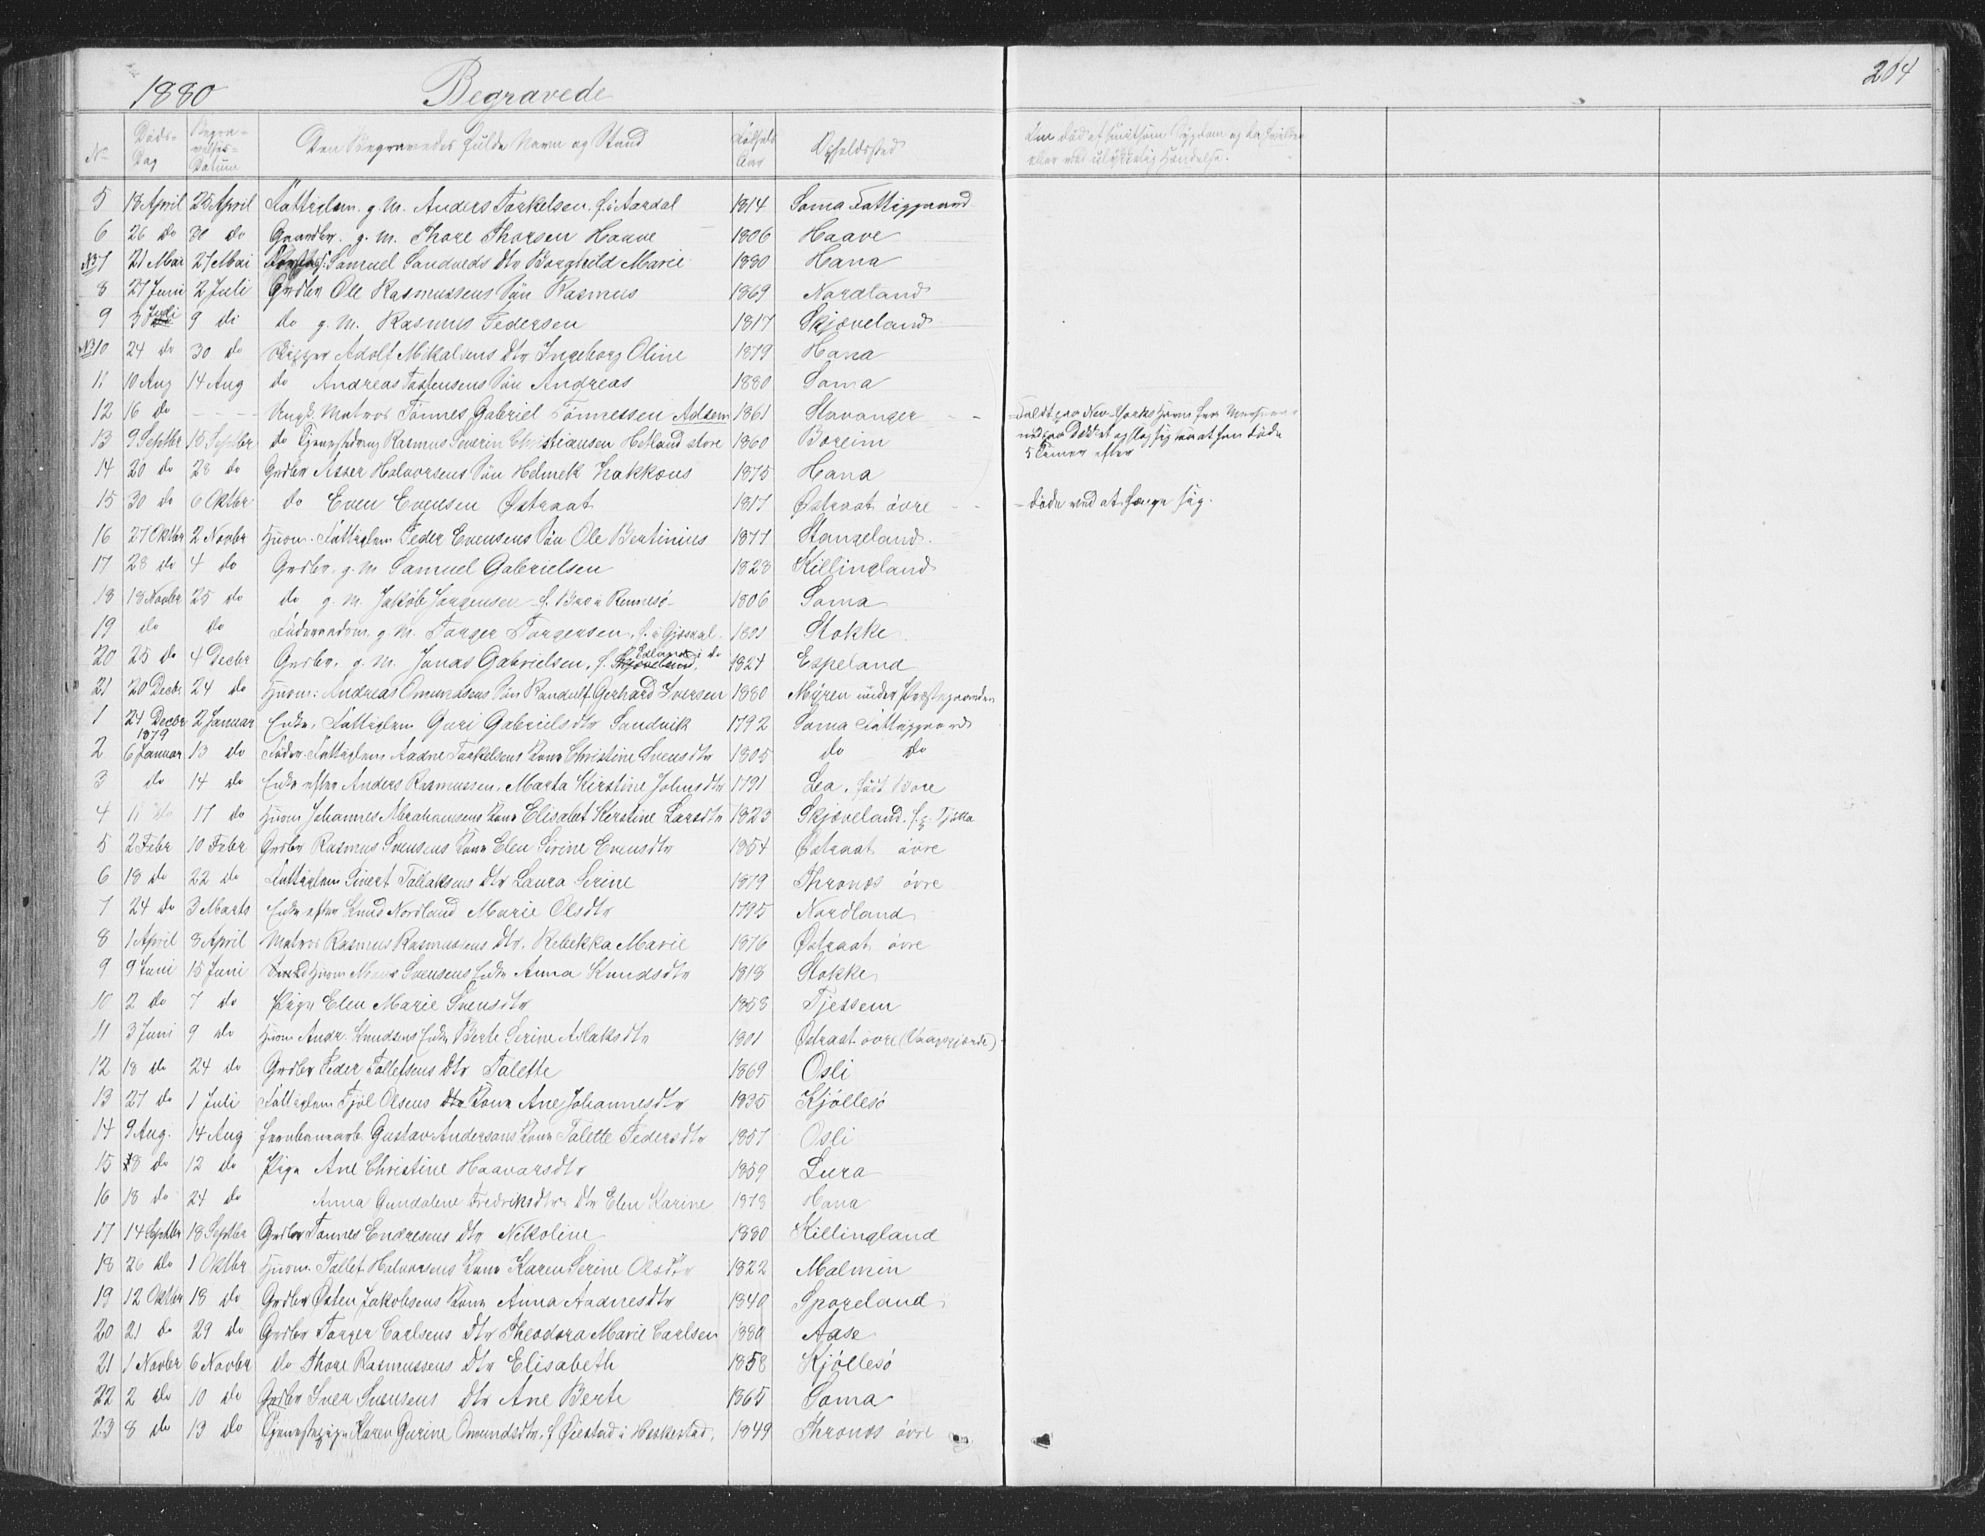 1880 Begravede 204
No Døds-Dag Begravelses-Datum Den Begravedes fulde Navn og Stand Fødsels Aar Opholdssted Om død af smitsom Sygdom
eller ved ulykkelig Hændelse.
5 18 April 25 April Fattiglem. g. M. Anders Torkelsen, f. i Aardal 1814 Soma Fattiggaard
6 26 do 30 do Gaardbr. g. M. Thore Thorsen Haave 1806 Haave
7 21 Mai 27 Mai Samuel Sandveds Dtr Borghild Marie 1880 Hana
8 27 Juni 2 Juli Grdbr Ole Rasmussens Søn Rasmus 1869 Nordland
9 3 Juli 9 di do g. M. Rasmus Pedersen 1817 Skjæveland
10 24 do 30 do Adolf Mikalsens Dtr Ingeborg Oline 1879 Hana
11 10 Aug 14 Aug do Andreas Tostensens Søn Andreas 1880 Soma
12 16 do - - - Ungk. Matros Tønnes Gabriel Tønnessen Adsem 1861 Stavanger - - faldt paa New-Yorks Havn fra
13 9 Septbr 15 Septbr do Tjenestedreng Rasmus Severin Christiansen Hetland store 1860 Boreim ned paa Dækket og slog sig saa at han døde
14 20 do 28 do Grdbr Asser Halvorsens Søn Helmik Hakkons 1875 Hana 5 Timer efter
15 30 do 6 Oktbr do Even Evensen Østraat 1817 Østraat øvre - - - døde ved at hænge sig.
16 27 Oktbr 2 Novbr Huum. Fattiglem Peder Evensens Søn Ole Bertinius 1877 Stangeland
17 28 do 4 do Grdbr. g. M Samuel Gabrielsen 1828 Killingland
18 18 Novbr 25 do do g. M. Jakob Jørgensen f. Bø i Rennesø 1806 Soma
19 do do Føderaadsm. g. M. Torger Torgersen, f. i Gjesdal 1801 Stokke
20 25 do 4 Decbr Grdbr. g. M. Jonas Gabrielsen, f. i do 1827 Espeland
21 20 Decbr. 24 do Huum: Andreas Omundsens Søn Randulf Gerhard Iversen 1880 Myren under Præstegaarden
1 24 Decbr 1879 2 Januar Enke. Fattiglem Guri Gabrielsdtr Sandvik 1792 Soma Fattiggaard
2 6 Januar 13 do Fattiglem Aadne Torkelsens Kone Christine Svensdtr 1805 do do
3 do 14 do Enke efter Anders Rasmussen, Marta Kirstine Johnsdtr 1791 Lea. født Bore
4 11 do 17 do Huum Johannes Abrahamsens Kone Elisabet Kirstine Larsdtr 1823 Skjæveland.
5 2 Febr 10 Febr Grdbr Rasmus Svensens Kone Elen Serine Evensdtr 1854 Østraat øvre
6 18 do 22 do Fattiglem Sivert Tollaksens Dtr Laura Serine 1879 Thronæs øvre
7 24 do 3 Marts Enke efter Knud Nordland Marie Olsdtr 1795 Nordland
8 1 April 8 April Matros Rasmus Rasmussens Dtr. Rebekka Marie 1876 Østraat øvre
9 9 Juni 15 Juni Huum Svensens Enke Anna Knudsdtr 1818 Stokke
10 2 do 7 do Pige Elen Marie Svensdtr 1858 Tjessem
11 3 Juni 9 do Huum Andr. Knudsens Enke Berte Serine Aslaksdtr 1801 Østraat øvre
12 18 do 24 do Grdbr Peder Tollefsens Dtr Talette 1869 Osli
13 27 do 1 Juli Fattiglem Tjøl Olsens Kone Ane Johannesdtr 1835 Kjøllesø
14 9 Aug. 14 Aug Jernbanearb. Gustav Andersons Kone Talette Pedersdtr 1857 Osli
15 8 do 12 do Pige Ane Christine Haavarsdtr 1859 Lura
16 18 do 24 do Anna Gundalene Fredriksdtrs Dtr Elen Karine 1878 Hana
17 14 Septbr 18 Septbr Grdbr Tønnes Endresens Dtr Nikoline 1880 Killingland
18 26 do 1 Oktbr Huum. Tollef Halvorsens Kone Karen Serine Olsdtr 1822 Malmin
19 12 Oktbr 18 do Grdbr Østen Jakobsens Kone Anna Aadnesdtr 1840 Sporeland
20 21 do 29 do Grdbr Torger Carlsens Dtr Theodora Marie Carlsen 1880 Aase
21 1 Novbr 6 Novbr do Thore Rasmussens Dtr Elisabeth 1858 Kjøllesø
22 2 do 10 do Grdbr Iver Svensens Dtr Ane Berte 1865 Soma
23 8 do 13 do Tjenestepige Karen Gurine Omundsdtr. f Øiestad i Heskestad. 1849 Thronæs øvre